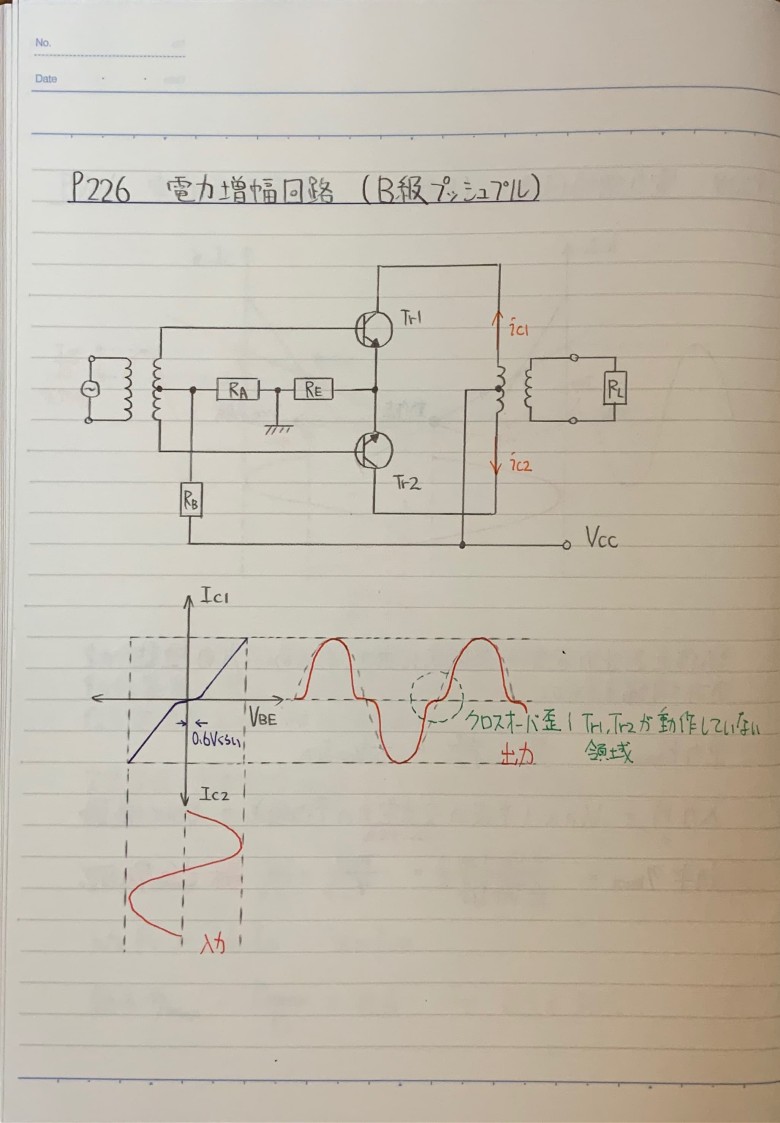 No.
Date
P226 電力増幅回路 (B級プッシュプル)
Tr1
ic1
RA
RE
RL
Tr2
ic2
RB
Vcc
Ic1
VBE
0.6Vくらい
クロスオーバ歪 | Tr1,Tr2が動作していない
領域
出力
Ic2
入力